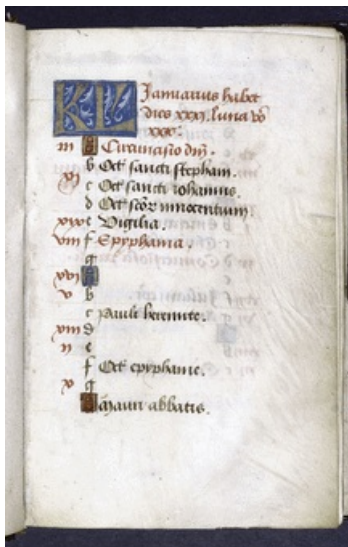 KL Januarius habet
dies xxxj. luna vo
xxx.
iij A Circuncisio dnj.
b Oct sancti stephani.
xj c Oct sancti iohannis.
d Oct scor innocentium.
xix e Vigilia.
viij f Epyphania.
g
xvj A
v b
c Pauli heremite.
xiij d
ij e
f Oct epyphanie.
x g
A Mauri abbatis.